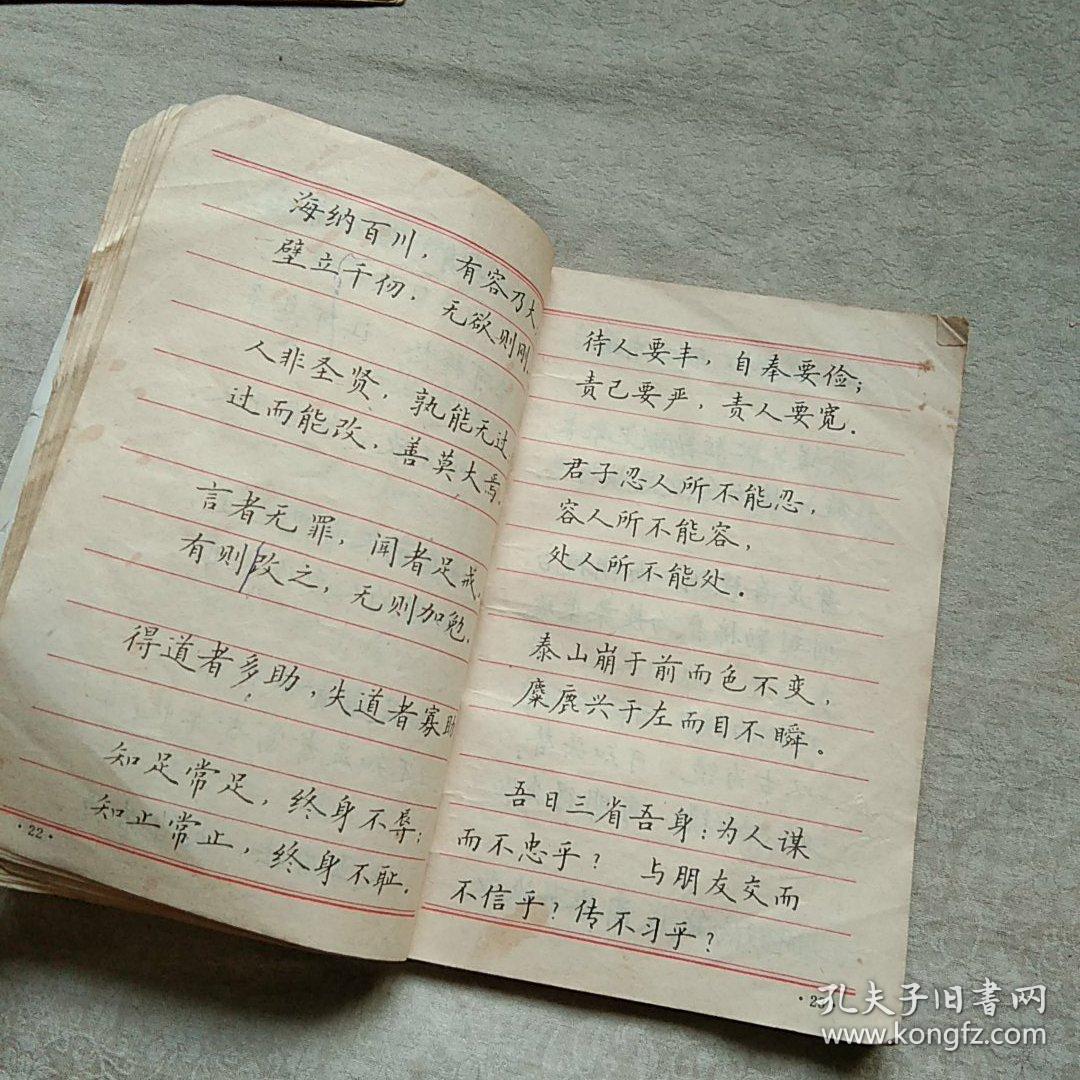 海纳百川，有容乃大
壁立千仞，无欲则刚
人非圣贤，孰能无过
过而能改，善莫大焉
言者无罪，闻者足戒，
有则改之，无则加勉。
得道者多助，失道者寡助
知足常足，终身不辱；
知止常止，终身不耻。
·22·
待人要丰，自奉要俭；
责己要严，责人要宽．
君子忍人所不能忍，
容人所不能容，
处人所不能处．
泰山崩于前而色不变，
麋鹿兴于左而目不瞬。
吾日三省吾身：为人谋
而不忠乎？ 与朋友交而
不信乎？传不习乎？
孔夫子旧書网
www.kongfz.com